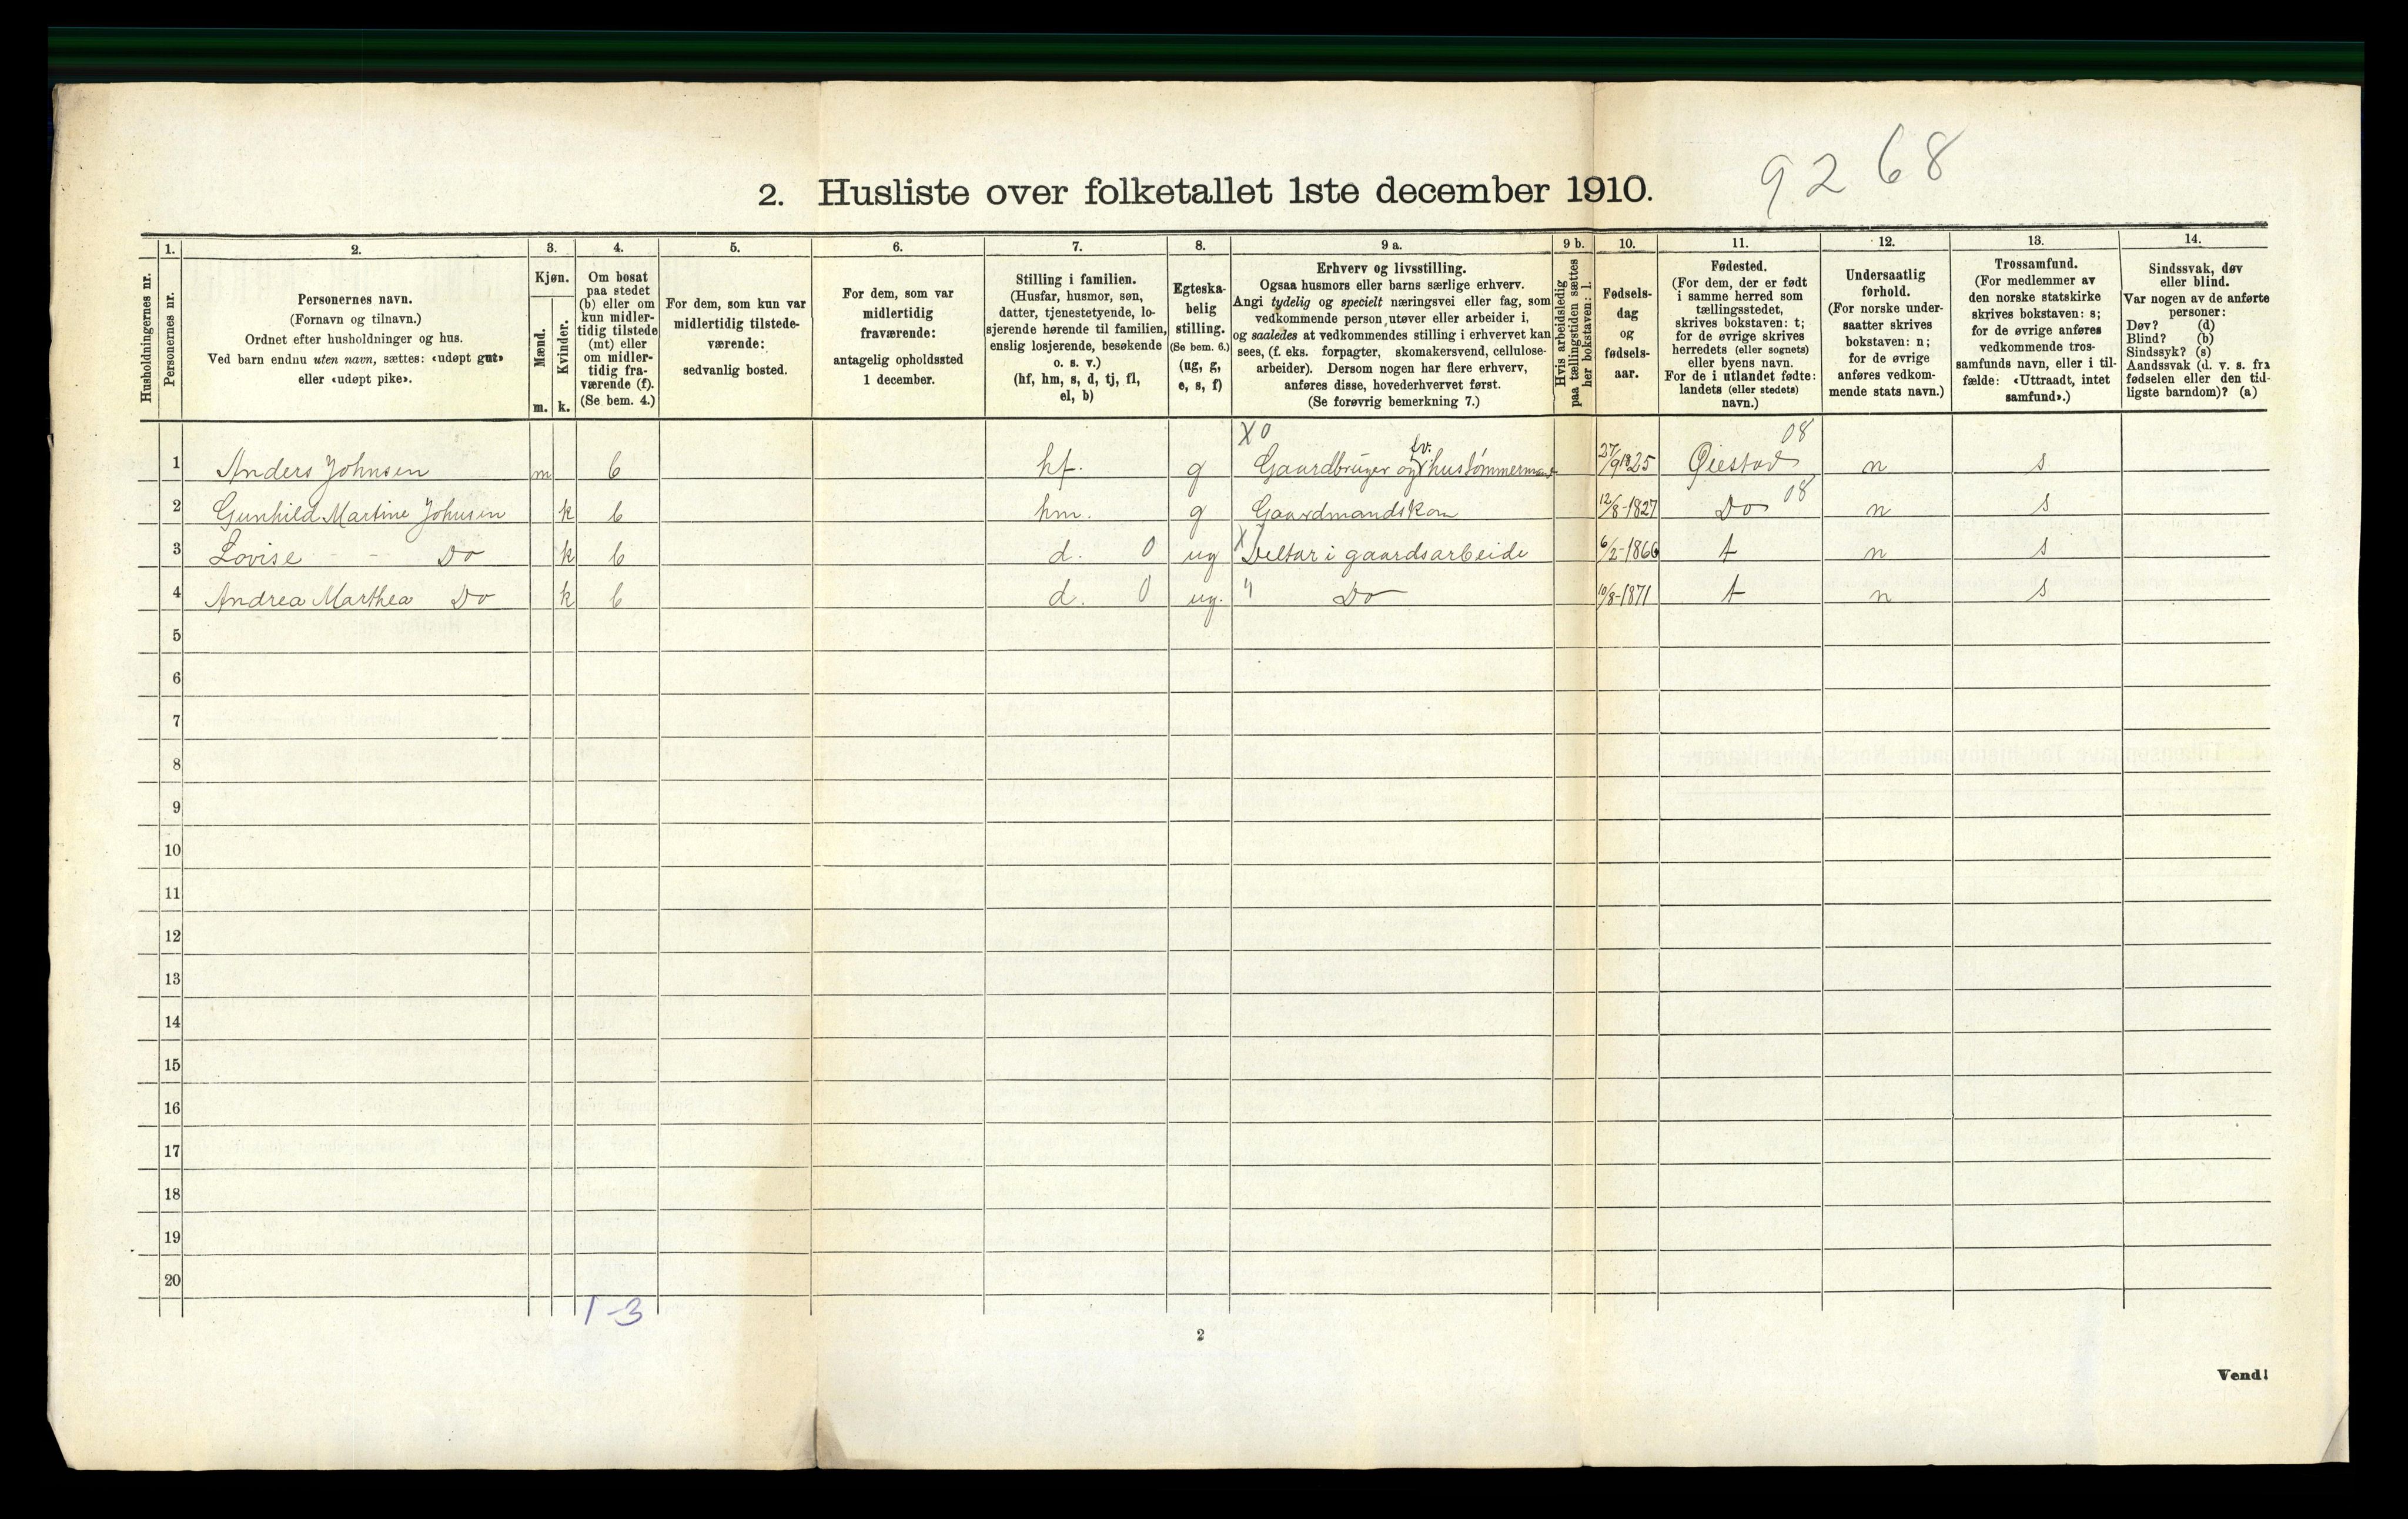 9268
2. Husliste over folketallet 1ste december 1910.
Husholdningernes nr.
1.
Personernes nr.
2.
Personernes navn.
(Fornavn og tilnavn.)
Ordnet efter husholdninger og hus.
Ved barn endnu uten navn, sættes: «udøpt gut»
eller «udøpt pike».
3.
Kjøn.
Mænd.
m.
Kvinder.
k.
4.
Om bosat
paa stedet
(b) eller om
kun midler-
tidig tilstede
(mt) eller
om midler-
tidig fra-
værende (f).
(Se bem. 4.)
5.
For dem, som kun var
midlertidig tilstede-
værende:
sedvanlig bosted.
6.
For dem, som var
midlertidig
fraværende:
antagelig opholdssted
1 december.
7.
Stilling i familien.
(Husfar, husmor, søn,
datter, tjenestetyende, lo-
sjerende hørende til familien,
enslig losjerende, besøkende
o. s. v.)
(hf, hm, s, d, tj, fl,
el, b)
8.
Egteska-
belig
stilling.
(Se bem. 6.)
(ug, g,
e, s, f)
9 a.
Erhverv og livsstilling.
Ogsaa husmors eller barns særlige erhverv.
Angi tydelig og specielt næringsvei eller fag, som
vedkommende person utøver eller arbeider i,
og saaledes at vedkommendes stilling i erhvervet kan
sees, (f. eks. forpagter, skomakersvend, cellulose-
arbeider). Dersom nogen har flere erhverv,
anføres disse, hovederhvervet først.
(Se forøvrig bemerkning 7.)
9 b.
Hvis arbeidsledig
paa tællingstiden sættes
her bokstaven: l.
10.
Fødsels-
dag
og
fødsels-
aar.
11.
Fødested.
(For dem, der er født
i samme herred som
tællingsstedet,
skrives bokstaven: t;
for de øvrige skrives
herredets (eller sognets)
eller byens navn.
For de i utlandet fødte:
landets (eller stedets)
navn.)
12.
Undersaatlig
forhold.
(For norske under-
saatter skrives
bokstaven: n;
for de øvrige
anføres vedkom-
mende stats navn.)
13.
Trossamfund.
(For medlemmer av
den norske statskirke
skrives bokstaven: s;
for de øvrige anføres
vedkommende tros-
samfunds navn, eller i til-
fælde: «Uttraadt, intet
samfund».)
14.
Sindssvak, døv
eller blind.
Var nogen av de anførte
personer:
Døv? (d)
Blind? (b)
Sindssyk? (s)
Aandssvak (d. v. s. fra
fødselen eller den tid-
ligste barndom)? (a)
X0 08
1 Anders Johnsen m b hf. g Gaardbruger og fv. hustømmermand 27/9 1825 Øiestad n s
2 Gunhild Martine Johnsen k b hm. g Gaardmandskone 12/8-1827 Do 08 n s
3 Lovise - - Do k b d. 0 ug X Deltar i gaardsarbeide 6/2-1866 t n s
4 Andrea Marthea Do k b d. 0 ug. " Do 10/8-1871 t n s
5
6
7
8
9
10
11
12
13
14
15
16
17
18
19
20
1-3
2
Vend!